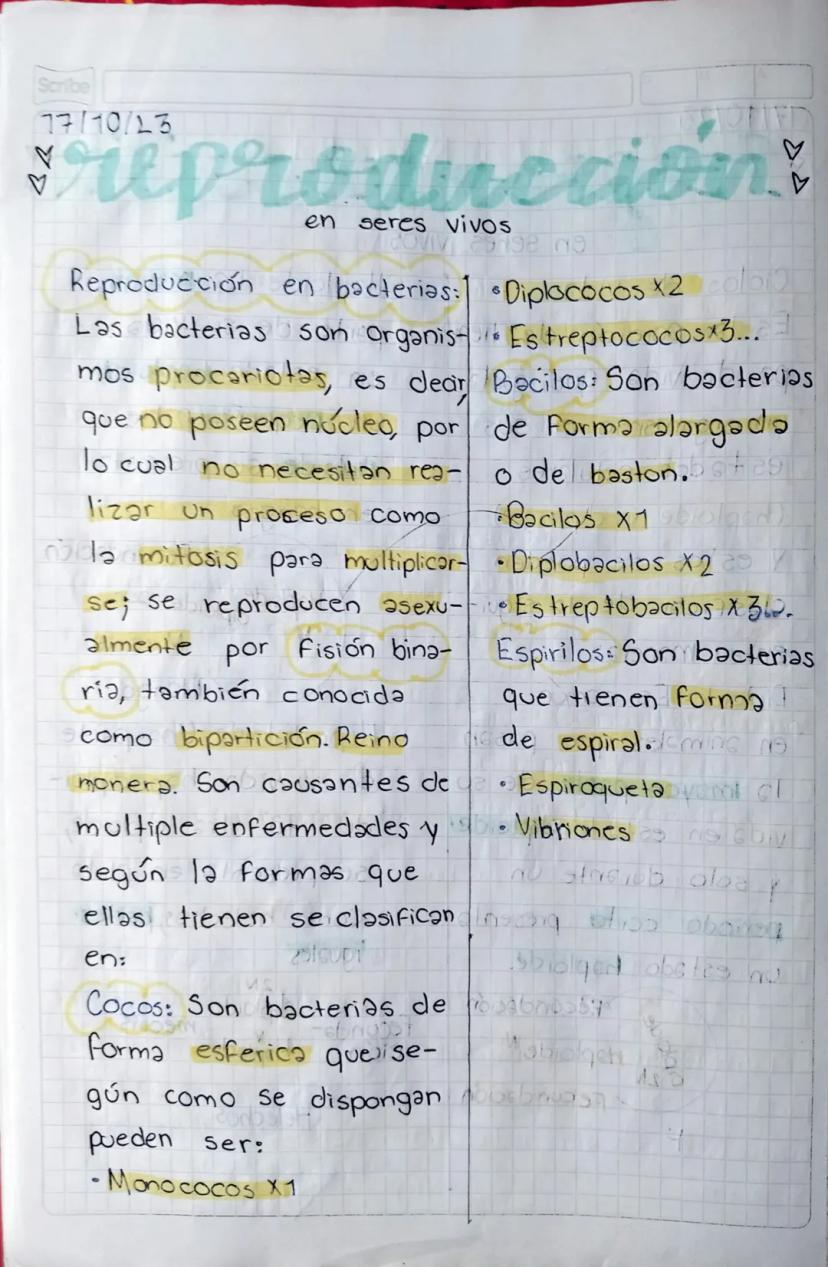 Scribe
17/10/23
reproducción
en seres vivos
Reproducción en bacterias:
Las bacterias son organis-
mos procariotas, es decir,
que no poseen núcleo, por
lo cual no necesitan rea-
lizar un proceso como
la mitosis para multiplicar-
se; se reproducen asexu-
almente por fisión bina-
ria, también conocida
como bipartición. Reino
monera. Son causantes de
multiple enfermedades y
según la formas que
ellas tienen se clasifican
en:
Cocos: Son bacterias de
forma esferica que se-
gún como se dispongan
pueden ser:
• Monococos x1
• Diplococos x2
• Estreptococos x3...
Bacilos: Son bacterias
de forma alargada
o de baston.
• Bacilos x1
• Diplobacilos x2
• Estreptobacilos x3...
Espirilos: Son bacterias
que tienen forma
de espiral.
• Espiroqueta
• Vibriones